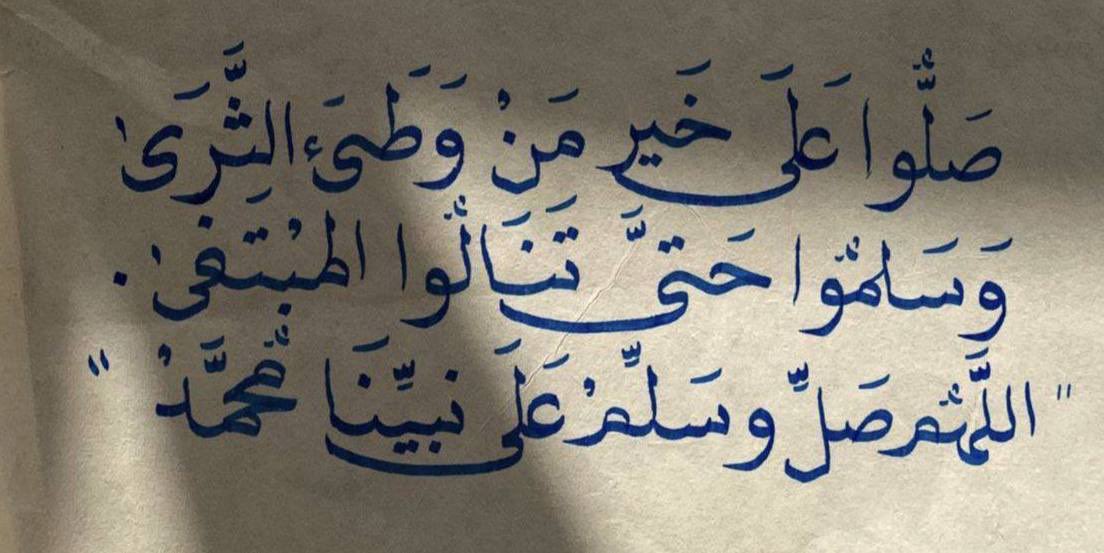 صَلُّوا عَلَى خَيرِ مَنْ وَطِئَ الثَّرَىٰ
وَسَلِّمُوا حَتَّى تَنَالُوا المُبْتَغَىٰ .
"اللَّهُم صَلِّ وسَلِّمْ عَلَى نَبيِّنَا مُحمَّدْ"